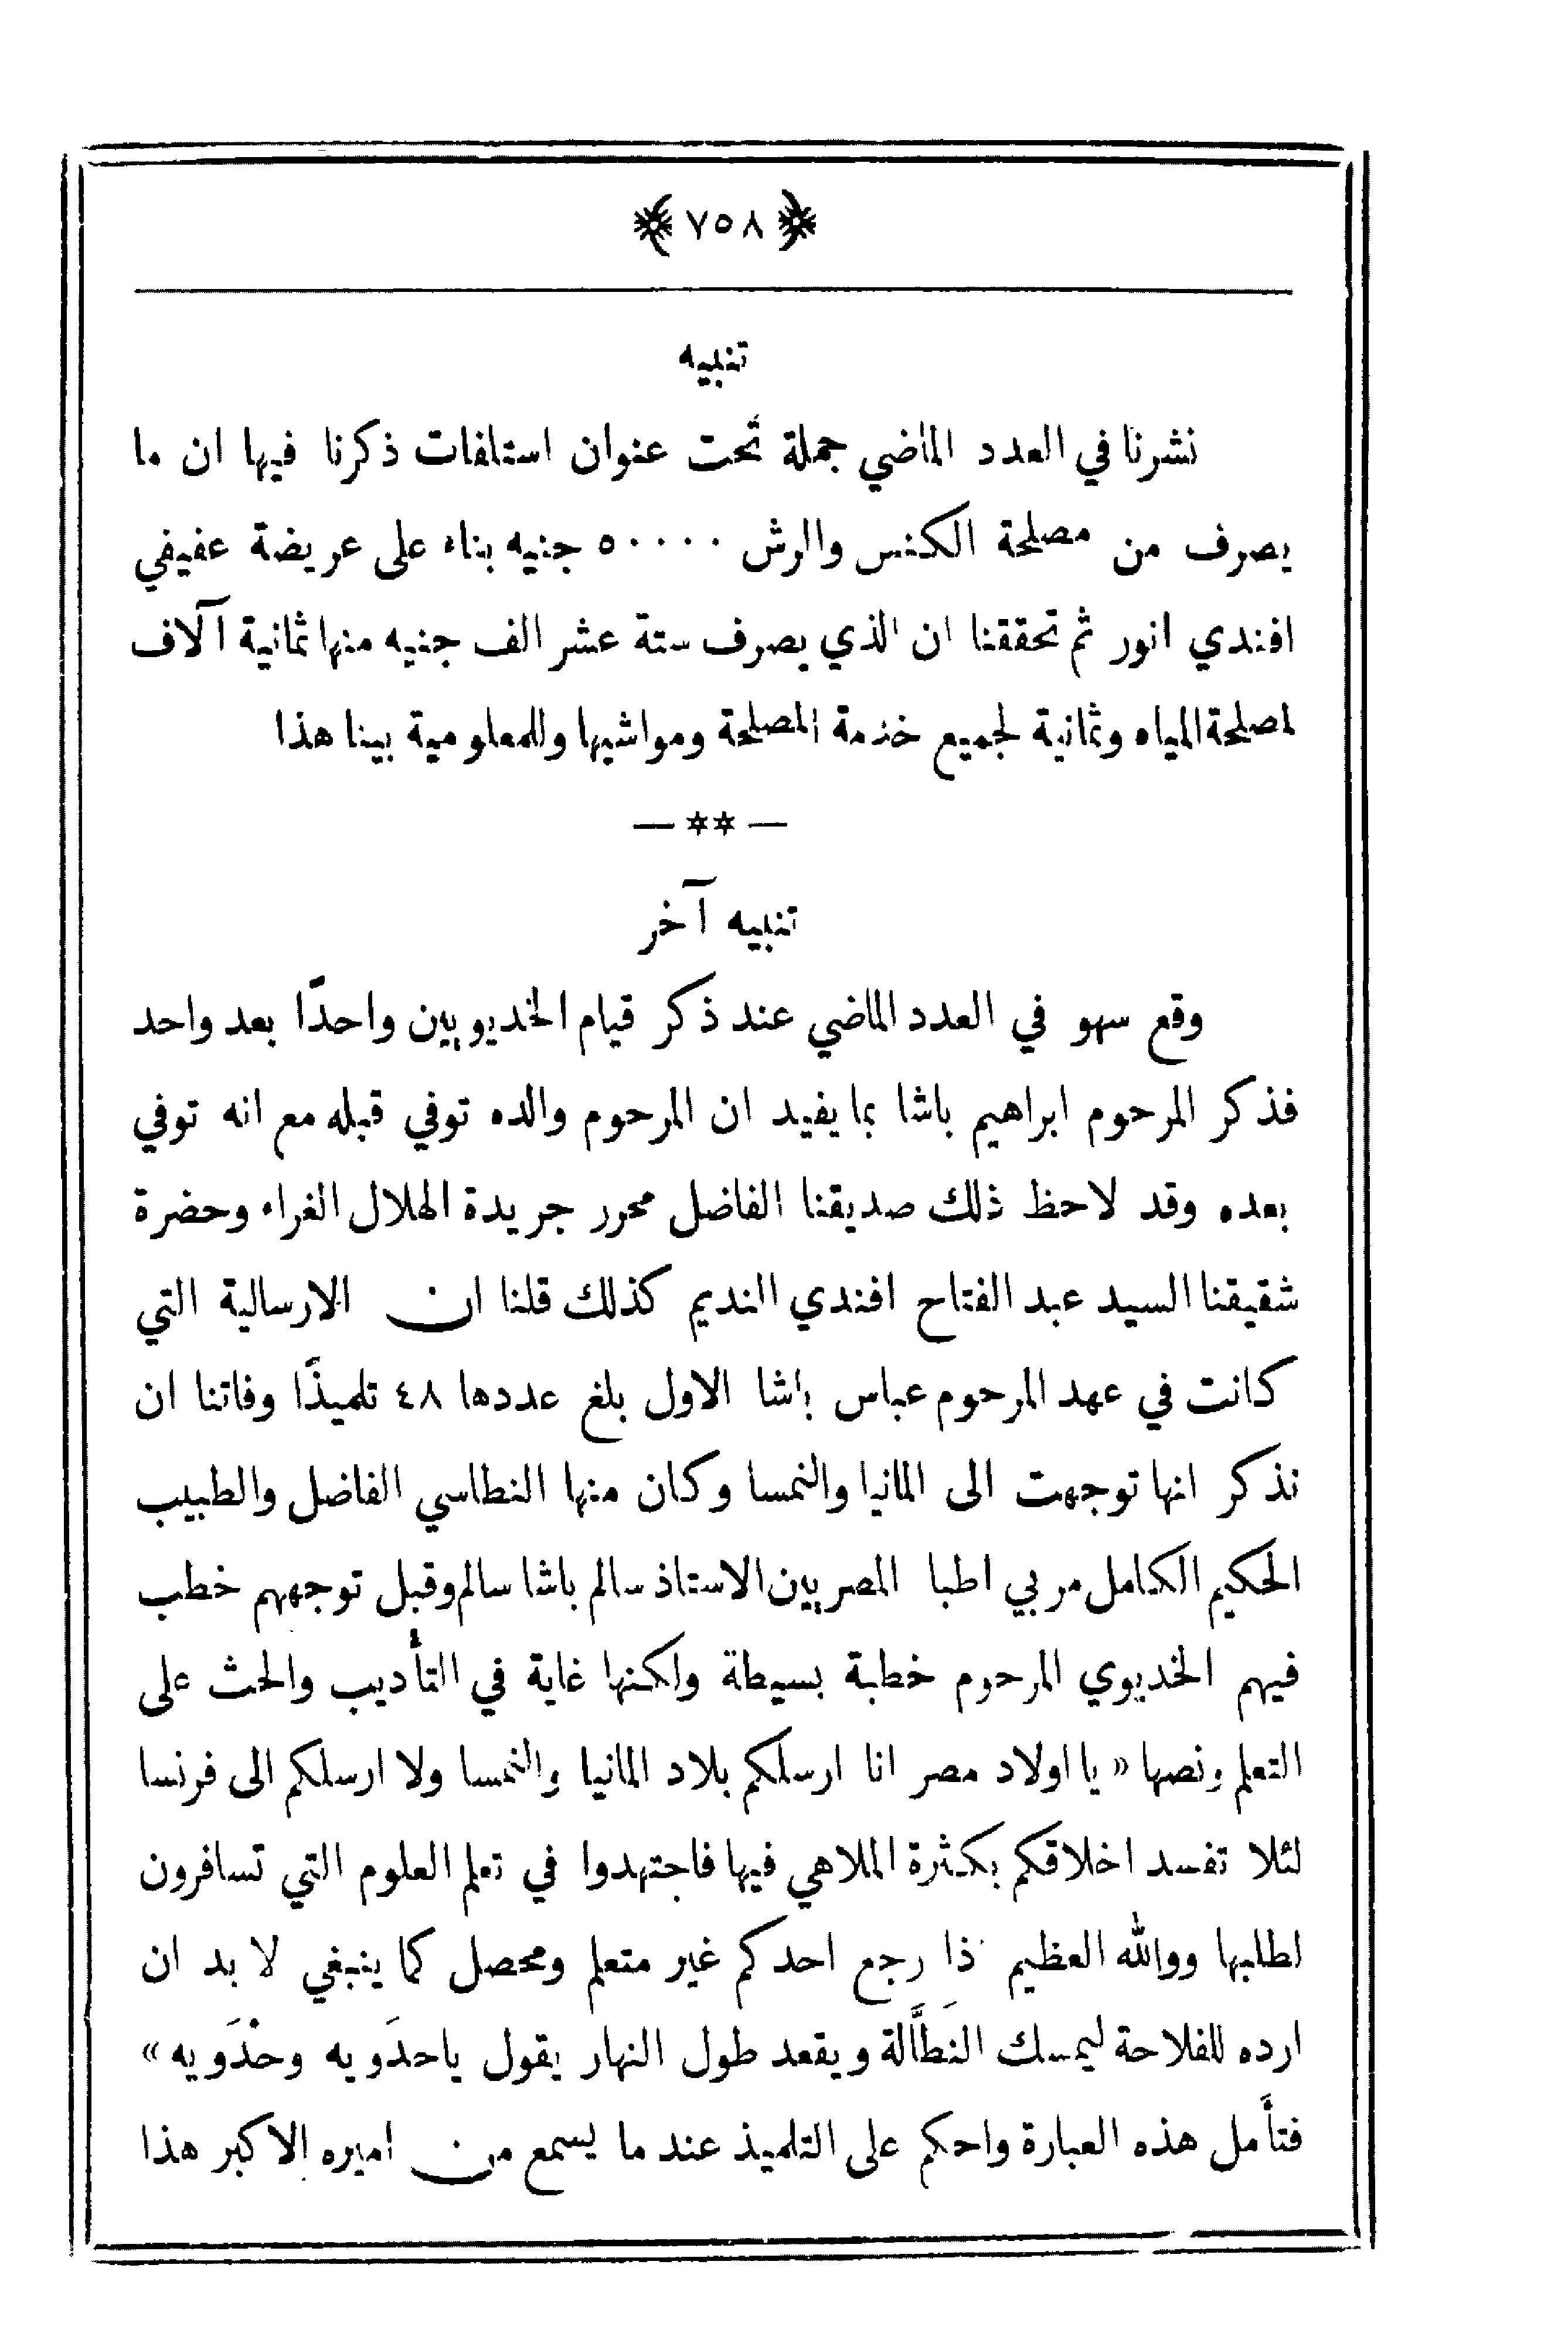 ﴿ ٧٥٨ ﴾
تنبيه
نشرنا في العدد الماضي جملة تحت عنوان استلفات ذكرنا فيها ان ما
يصرف من مصلحة الكنس والرش ٥٠٠٠٠ جنيه بناء على عريضة عفيفي
افندي انور ثم تحققنا ان الذي يصرف ستة عشر الف جنيه منها ثمانية آلاف
لمصلحة المياه وثمانية لجميع خدمة المصلحة ومواشيها وللمعلومية بينا هذا
— ** —
تنبيه آخر
وقع سهو في العدد الماضي عند ذكر قيام الخديويين واحدًا بعد واحد
فذكر المرحوم ابراهيم باشا بما يفيد ان المرحوم والده توفي قبله مع انه توفي
بعده وقد لاحظ ذلك صديقنا الفاضل محرر جريدة الهلال الغراء وحضرة
شقيقنا السيد عبد الفتاح افندي النديم كذلك قلنا ان الارسالية التي
كانت في عهد المرحوم عباس باشا الاول بلغ عددها ٤٨ تلميذًا وفاتنا ان
نذكر انها توجهت الى المانيا والنمسا وكان منها النطاسي الفاضل والطبيب
الحكيم الكامل مربي اطبا المصريين الاستاذ سالم باشا سالم وقبل توجههم خطب
فيهم الخديوي المرحوم خطبة بسيطة ولكنها غاية في التأديب والحث على
التعلم ونصها « يا اولاد مصر انا ارسلكم بلاد المانيا والنمسا ولا ارسلكم الى فرنسا
لئلا تفسد اخلاقكم بكثرة الملاهي فيها فاجتهدوا في تعلم العلوم التي تسافرون
لطلبها ووالله العظيم ذا رجع احدكم غير متعلم ومحصل كما ينبغي لا بد ان
ارده للفلاحة ليمسك النَطَّالة ويقعد طول النهار يقول ياحدَويه وحْدَويه »
فتأمل هذه العبارة واحكم على التلميذ عند ما يسمع من اميره الاكبر هذا